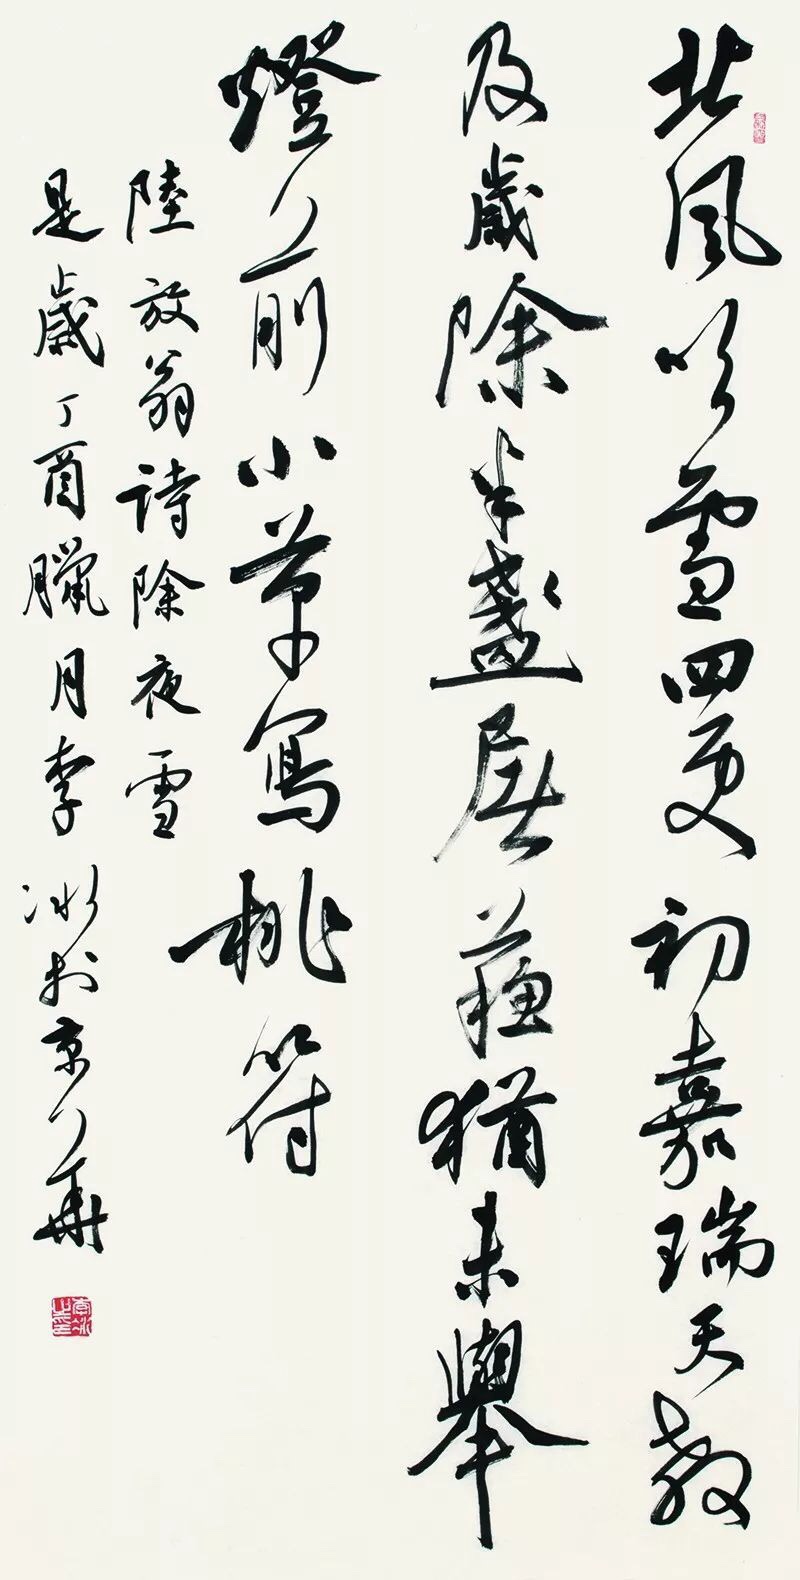 北風吹雪四更初嘉瑞天教
及歲除半盞屠蘇猶未舉
燈前小草寫桃符
陸放翁詩除夜雪
是歲丁酉臘月李冰於京華